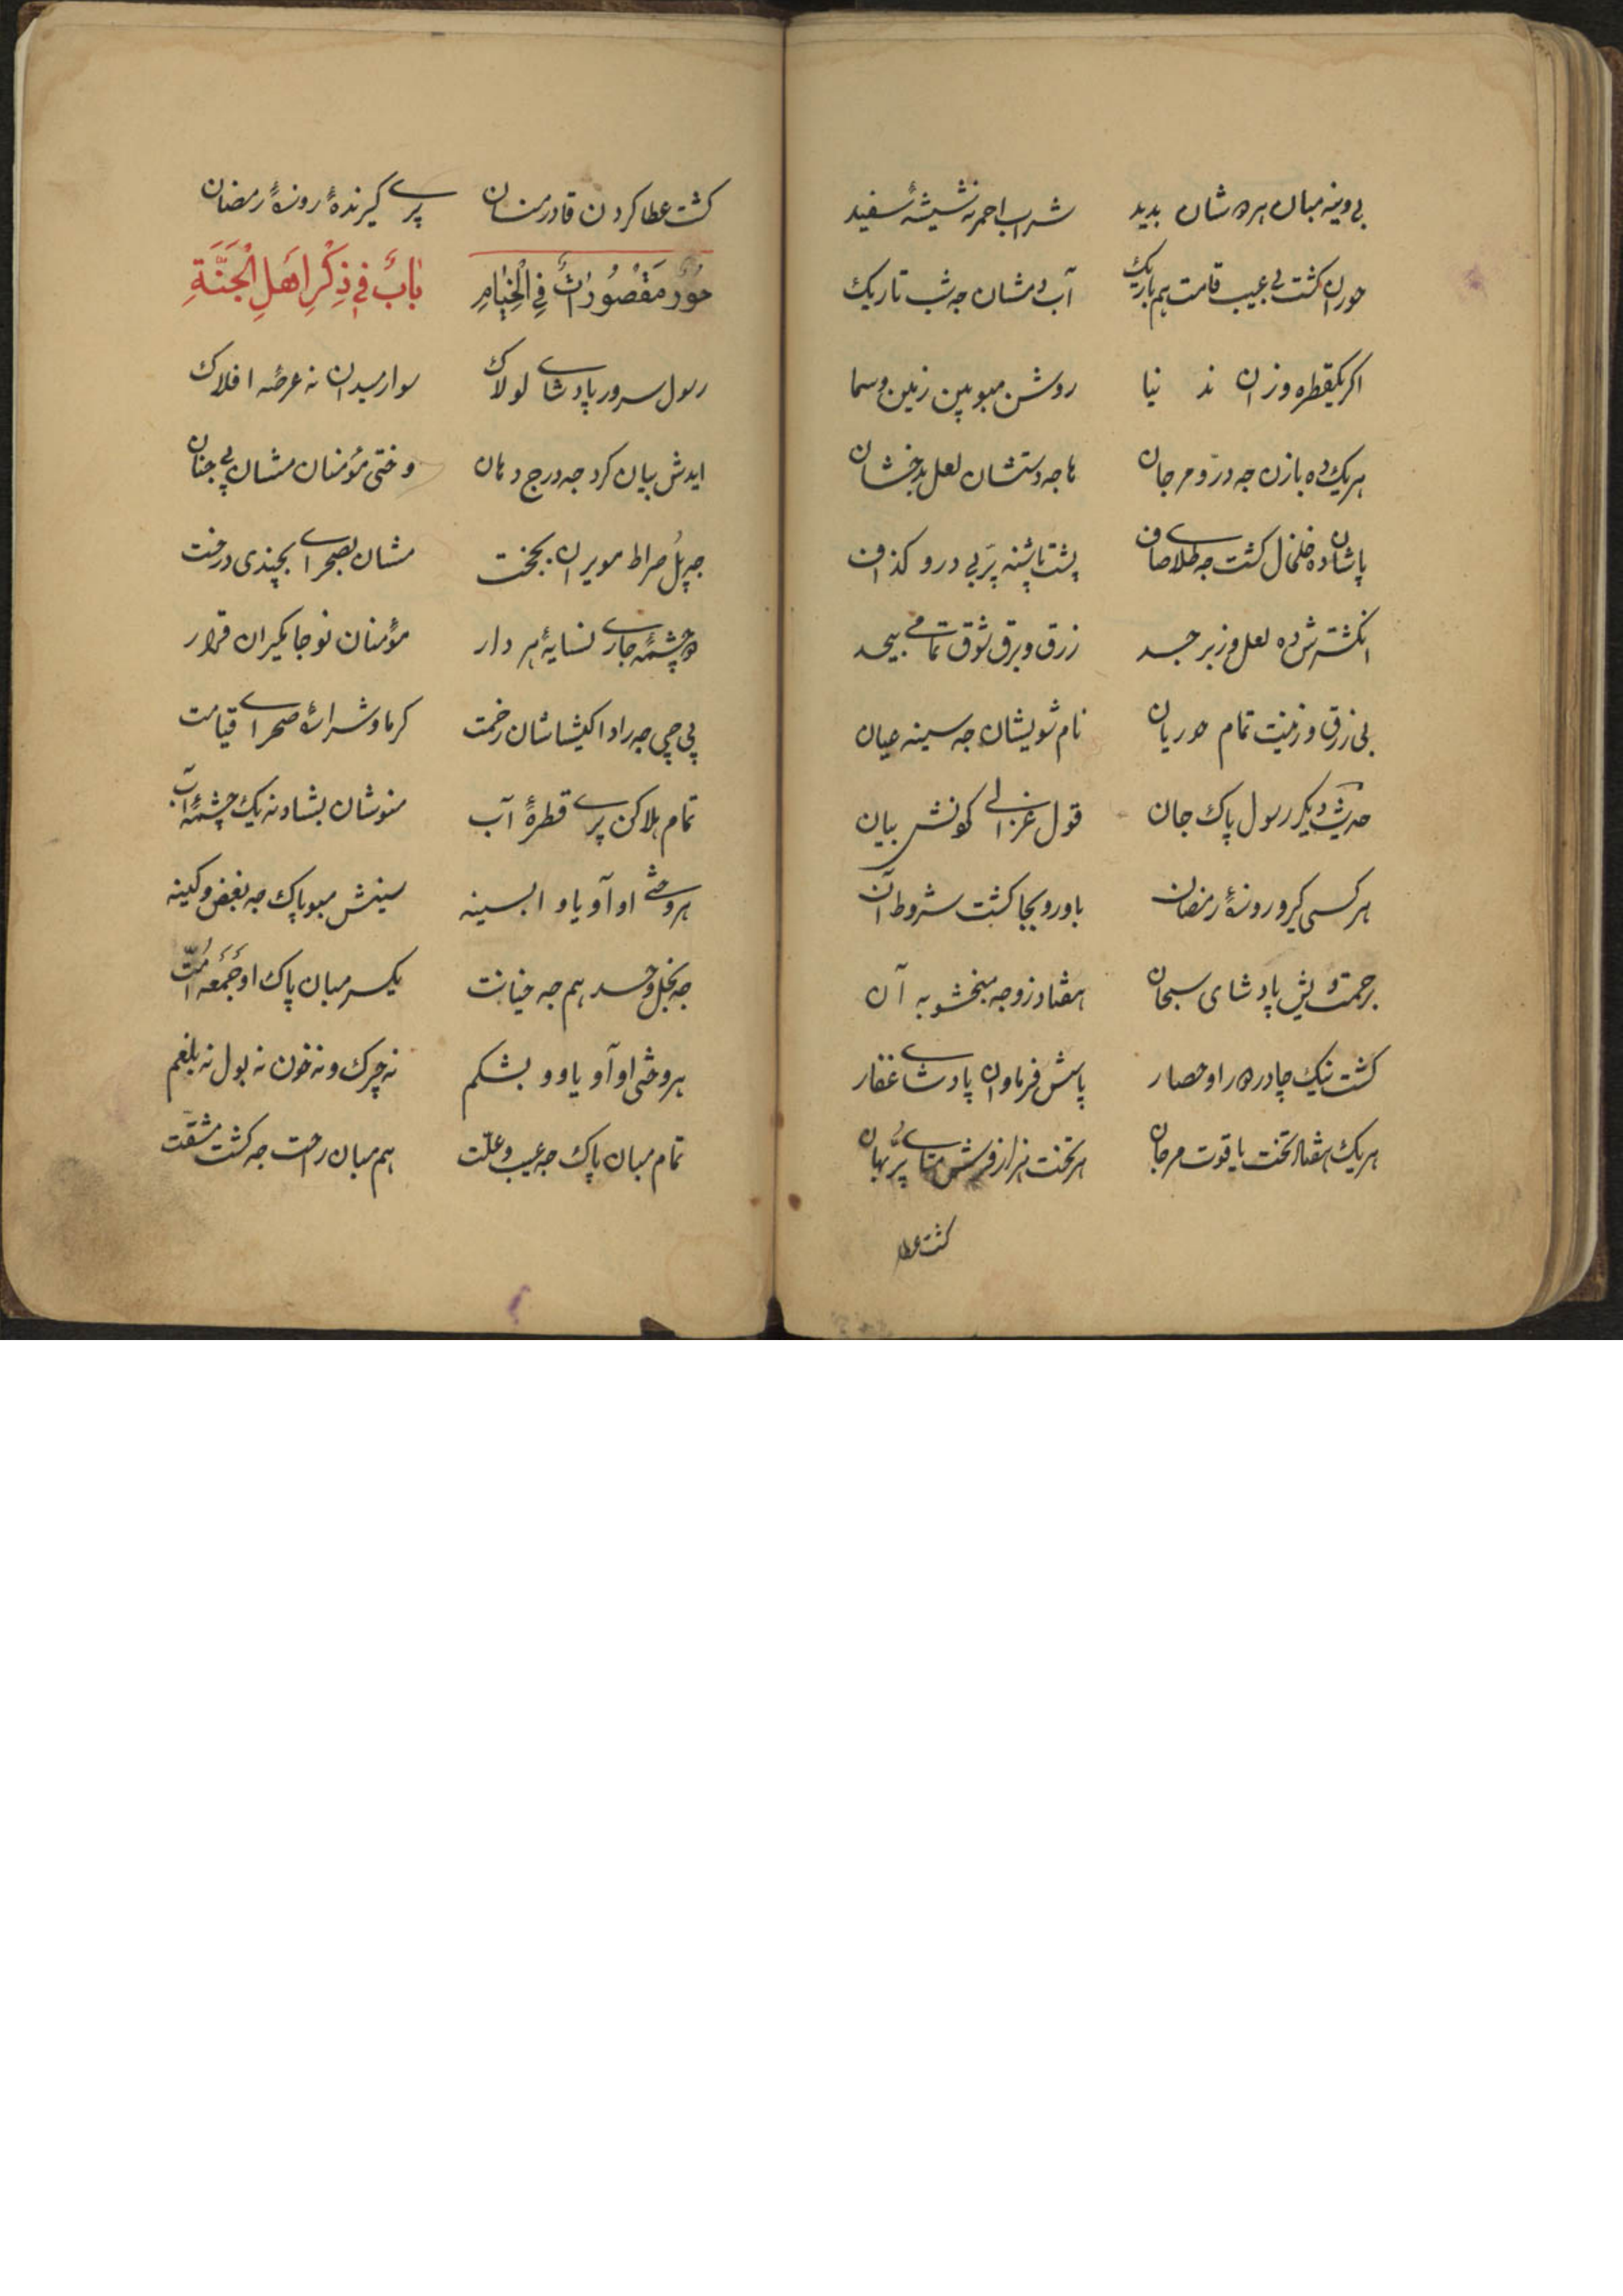 بی وینه مبان هر ده شان بدید شراب احمر نه شیشهٔ سفید
حوران کشت بی عیب قامت هم باریک آب دمشان جه شب تاریک
اکر یکقطره وزان ند نیا روشن مبو بین زمین و سما
هر یک ده بازن جه در و مرجان ها جه دستشان لعل بدخشان
پاشان ده خلخال کشت جه طلای صاف پشت پاشنه پر بی درو کذاف
انکشترش ده لعل و زبرجد زرق و برق شوق تمامی بیحد
بی زرق و زینت تمام حوریان نام شویشان جه سینه عیان
حدیث دیکر رسول پاک جان قول غزالی کونش بیان
هر کسی کیرو روزهٔ رمضان باورو بجا کشت شروط آن
برحمت ویش پادشای سبحان هفتاد زوجه مبخشو به آن
کشت نیک چادر ده را و حصار پاسش فرماون پادشای غفار
هر یک هفتاد تخت یاقوت مرجان هر تخت هزار فرش متای پر بهان
کشت عطا
کشت عطا کردن قادر منان پری کیرندهٔ روزهٔ رمضان
حور مَقْصُورَاتٌ فِی الْخِیَامِ بَابٌ فِی ذِکْرِ اَهْلِ الْجَنَّةِ
رسول سرور پادشای لولاک سوار میدان نه عرصه افلاک
ایدش بیان کرد جه درج دهان وختی مؤمنان مشان پی جنان
جه پل صراط مویران بجخت مشان بصحرای بچندی درخت
دو چشمه جاری نسایهٔ هر دار مؤمنان نو جا بکیران قرار
پی چی جه راد اکیشاشان زحمت کرما و شرارهٔ صحرای قیامت
تمام هلاکن پری قطرهٔ آب منوشان بشاد نه یک چشمهٔ آب
هر وختی او آو یاو ابسینه سینش مبو پاک جه بغض و کینه
جه بخل و حسد هم جه خیانت یکسر مبان پاک او جمعه امت
هر وختی او آو یاوو بشکم نه چرک و نه خون نه بول نه بلغم
تمام مبان پاک جه عیب و علت هم مبان راحت جه کشت مشقت